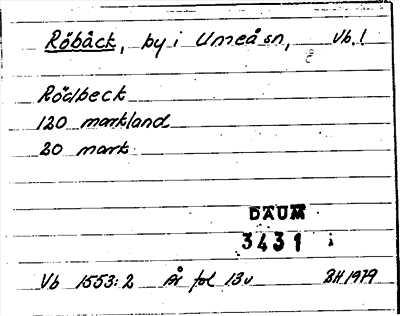 Röbäck, by i Umeå sn, Vb.!
Rödbeck
120 markland
20 mark
DAUM
3431
Vb 1553:2 År fol 13v BH 1979